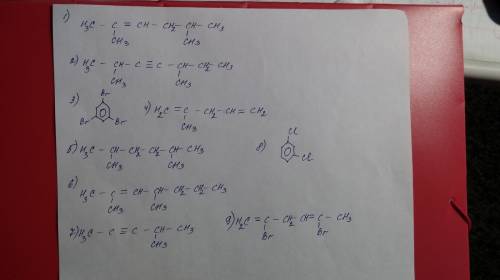 1) H₃C - C = CH - CH₂ - CH - CH₃
CH₃ CH₃
2) H₃C - CH - C ≡ C - CH - CH₂ - CH₃
CH₃ CH₃
3) Br Br Br 4) H₂C = C - CH₂ - CH = CH₂
CH₃
5) H₃C - CH - CH₂ - CH₂ - CH - CH₃ 8) Cl Cl
CH₃ CH₃
6) H₃C - C = CH - CH - CH₂ - CH₂ - CH₃
CH₃ CH₃
7) H₃C - C ≡ C - CH - CH₃ 9) H₂C = C - CH₂ - CH = C - CH₃
CH₃ Br Br